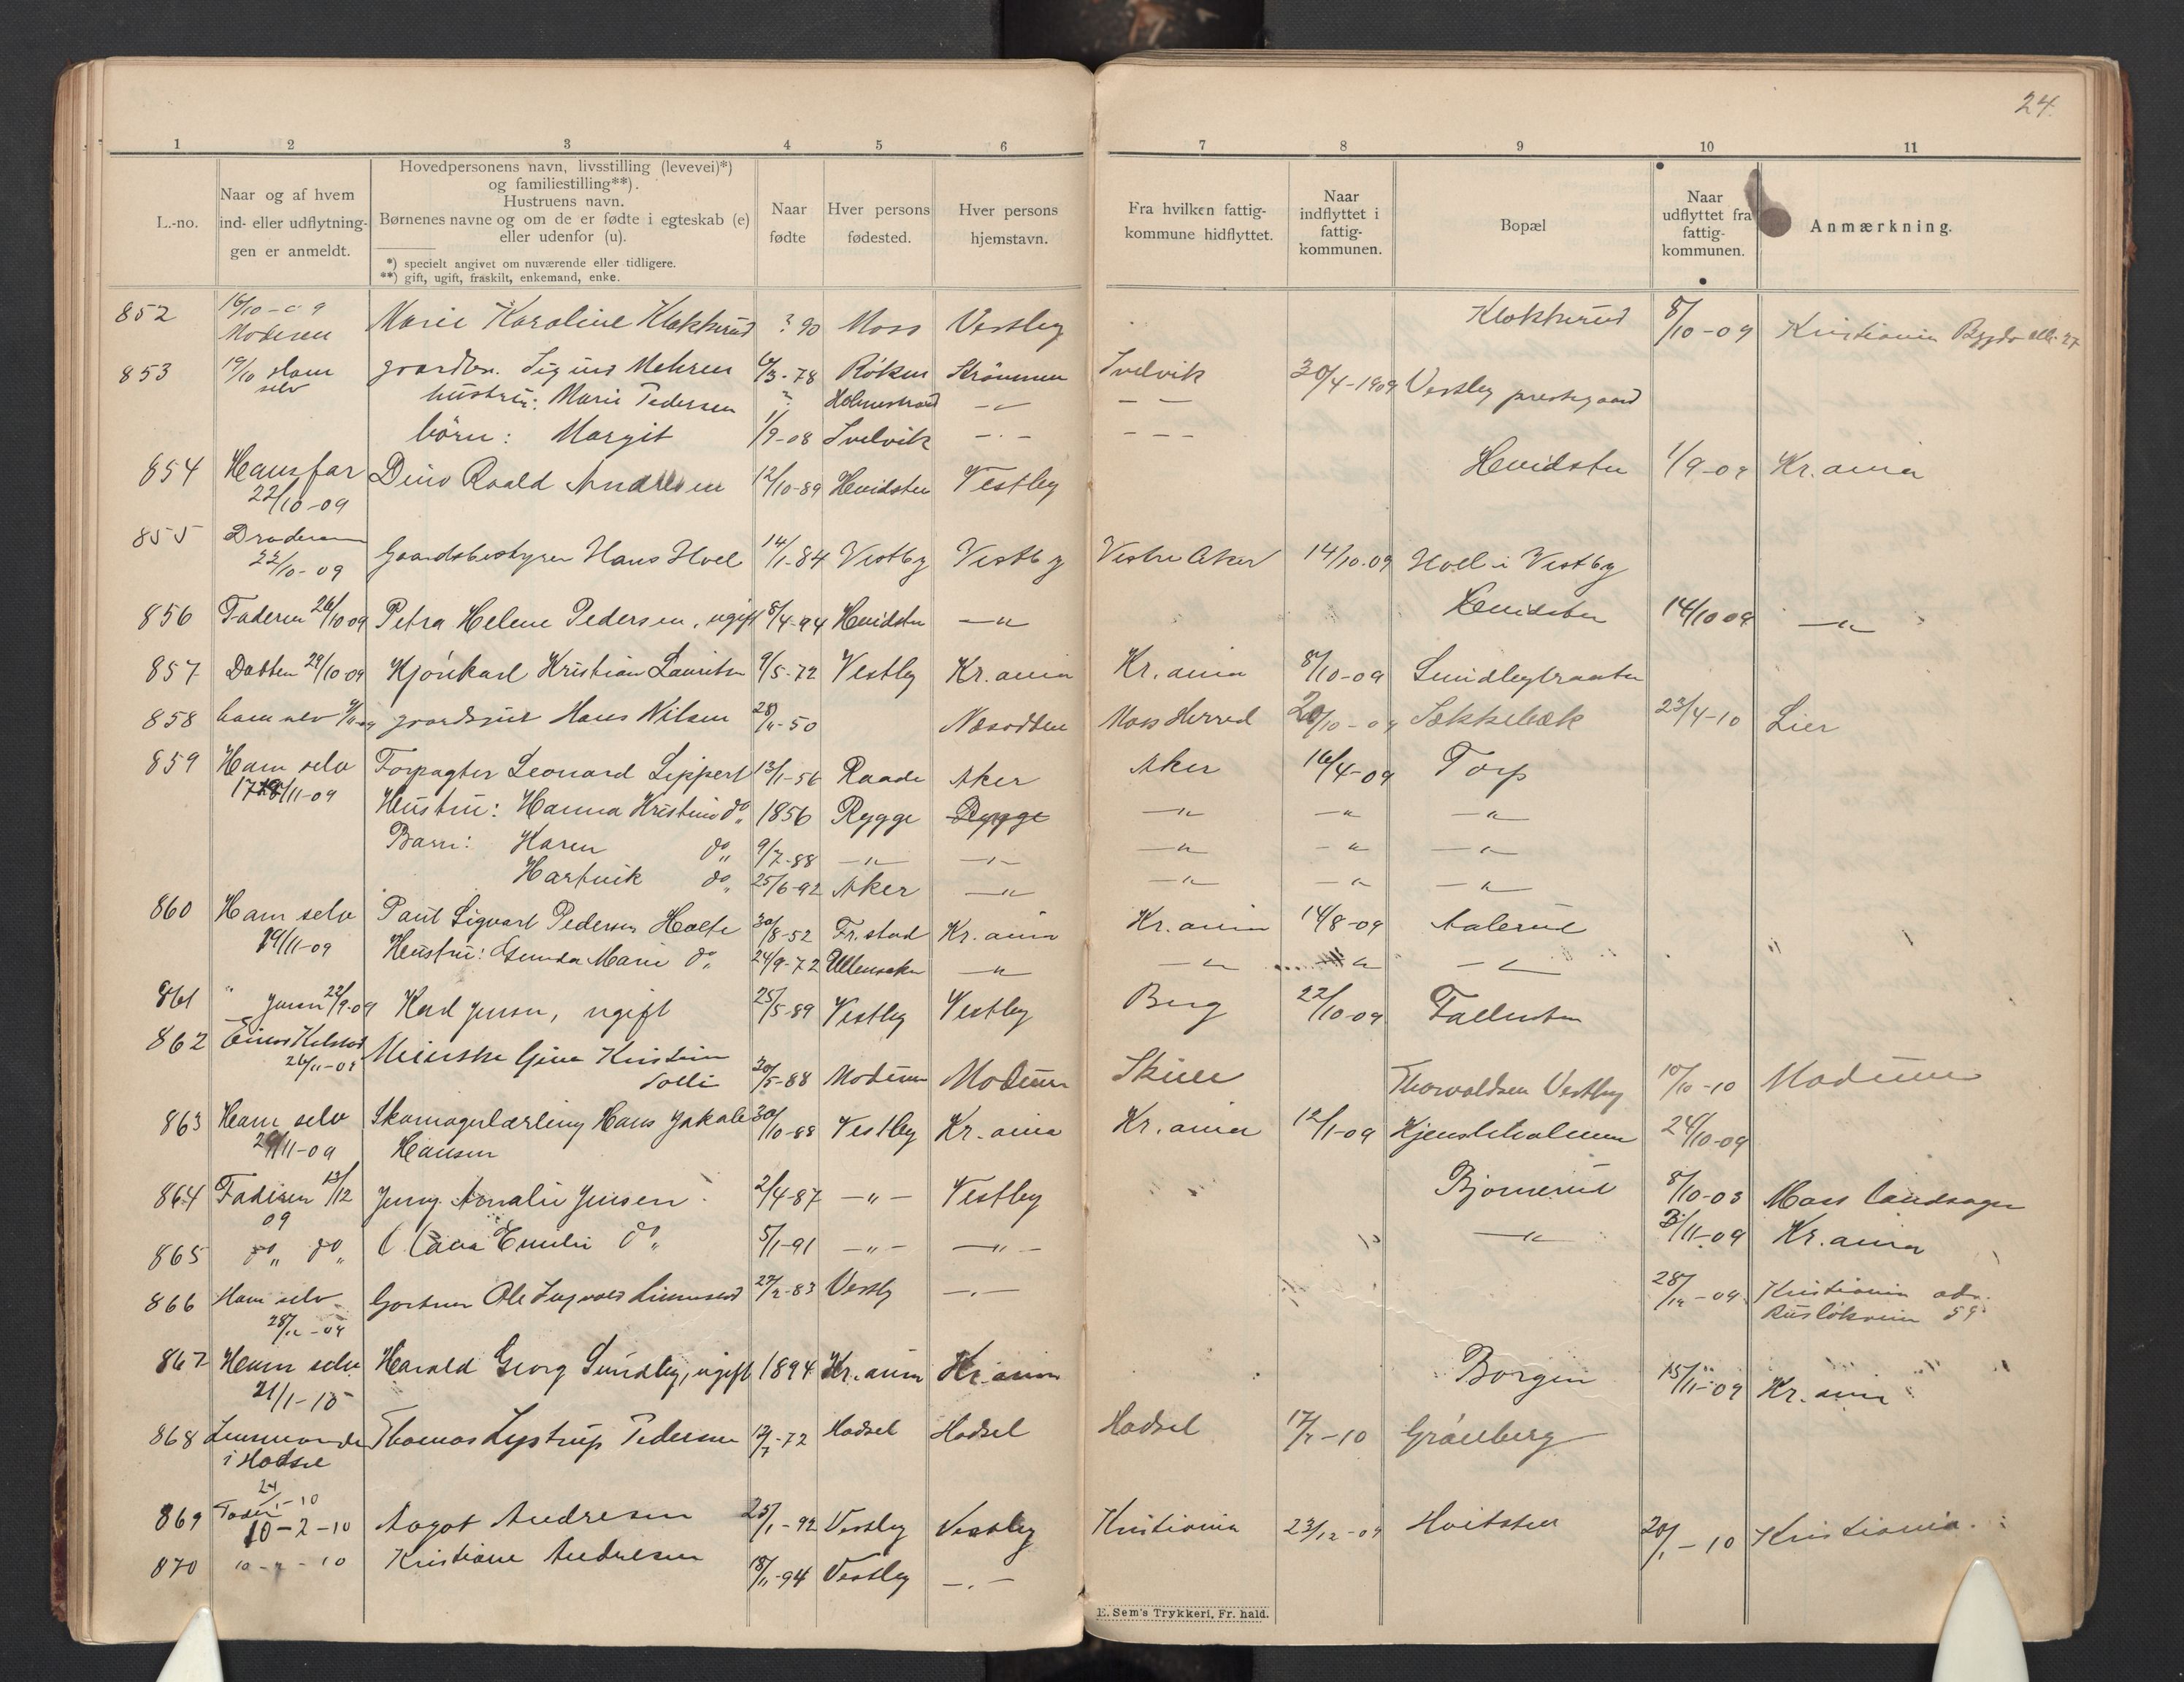 24.
1 2 3 4 5 6 7 8 9 10 11
L.-no.
Naar og af hvem
ind- eller udflytning-
gen er anmeldt.
Hovedpersonens navn, livsstilling (levevei)*)
og familiestilling**).
Hustruens navn.
Børnenes navne og om de er fødte i egteskab (e)
eller udenfor (u).
*) specielt angivet om nuværende eller tidligere.
**) gift, ugift, fraskilt, enkemand, enke.
Naar
fødte
Hver persons
fødested.
Hver persons
hjemstavn.
Fra hvilken fattig-
kommune hidflyttet.
Naar
indflyttet i
fattig-
kommunen.
Bopæl
Naar
udflyttet fra
fattig-
kommunen.
Anmærkning.
852 16/10-09 Moderen Marie Karoline Klokkerud ? 90 Moss Vestby Klokkerud 8/10-09 Kristiania Bygdø alle 27
853 19/10 Ham selv gaardbr. Sigurd Mehren 6/3-78 Røken Strømmen Svelvik 30/4-1909 Vestby prestegaard
hustru: Marie Pedersen ? Holmestrand -"- - -
børn: Margit 1/9-08 Svelvik -"- - - -
854 Hans far Dino Roald Andresen 12/10-89 Hvidsten Vestby Hvidsten 1/9-09 Kr.ania
22/10-09
855 Broderen
22/10-09 Gaardsbestyrer Hans Hoel 14/1-84 Vestby Vestby Vestre Aker 14/10-09 Hoel i Vestby
856 Faderen 26/10 09 Petra Helene Pedersen, ugift 8/4-94 Hvidsten -"- Hvidsten 14/10 09 -"-
857 29/10 09 Kjørekarl Kristian Lauritsen 9/5-72 Vestby Kr.ania Kr.ania 8/10-09 Sundbybraaten
858 ham selv gaardsgut Hans Nilsen 28/11-50 Næsodden Moss Herred 20/10-09 Sækkebæk 23/4-10 Lier
859 Ham selv Forpagter Leonard Lippert 13/1-56 Raade Aker Aker 16/4-09 Torp
17/11-09 Hustru: Hanna Kristine do 1856 Rygge Rygge -"- -"- -"-
Barn: Karen do 9/7-88 -"- -"- -"- -"- -"-
Hartvik do 25/6-92 Aker -"- -"- -"- -"-
860 Ham selv Paul Sigvart Pedersen Holte 30/8-52 Fr.stad Kr.ania Kr.ania 14/8-09 Aalerud
19/11-09 Hustru: Gunda Marie do 24/9-72 Ullensaker -"- -"- -"- -"-
861 " Jensen 22/9-09 Karl Jensen, ugift 25/5-89 Vestby Vestby Berg 22/10-09 Fallesten
862 Einar Kolstad
26/11-09 Meierske Gina Kristine
Solli 30/5-88 Modum Modum Skiee Thorvaldsen Vestby 10/10-10 Modum
863 Ham selv Skomagerlærling Hans Jakob 30/10-88 Vestby Kr.ania Kr.ania 12/1-09 Kjenstiholmen 24/10-09
29/11-09 Hansen
864 Faderen 13/12 Jenny Amalie Jensen 2/4-87 -"- Vestby Bjørnerud 8/10-08 Moss landsogn
09
865 do do Emilie do 5/1-91 -"- -"- -"- 3/11-09 Kr.ania
866 Ham selv Gartner Ole Ingvald Linnerud 27/2-83 Vestby -"- 28/12-09 Kristiania
28/12-09 Ruseløkveien 59
867 Ham selv Harald Georg Sundby, ugift 1894 Kr.ania Kr.ania Borgen 15/11-09 Kr.ania
21/1-10
868 Lensmanden Thomas Lystrup Pedersen 12/7-72 Hadsel Hadsel Hadsel 17/1-10 Grønberg
i Hadsel
24/1-10
869 Fader
10-2-10 Aagot Andresen 25/1-92 Vestby Vestby Kristiania 23/12-09 Hvitsten 20/1-10 Kristiania.
870 10-2-10 Kristiane Andresen 18/11-94 Vestby -"-
E. Sem's Trykkeri, Fr. hald.